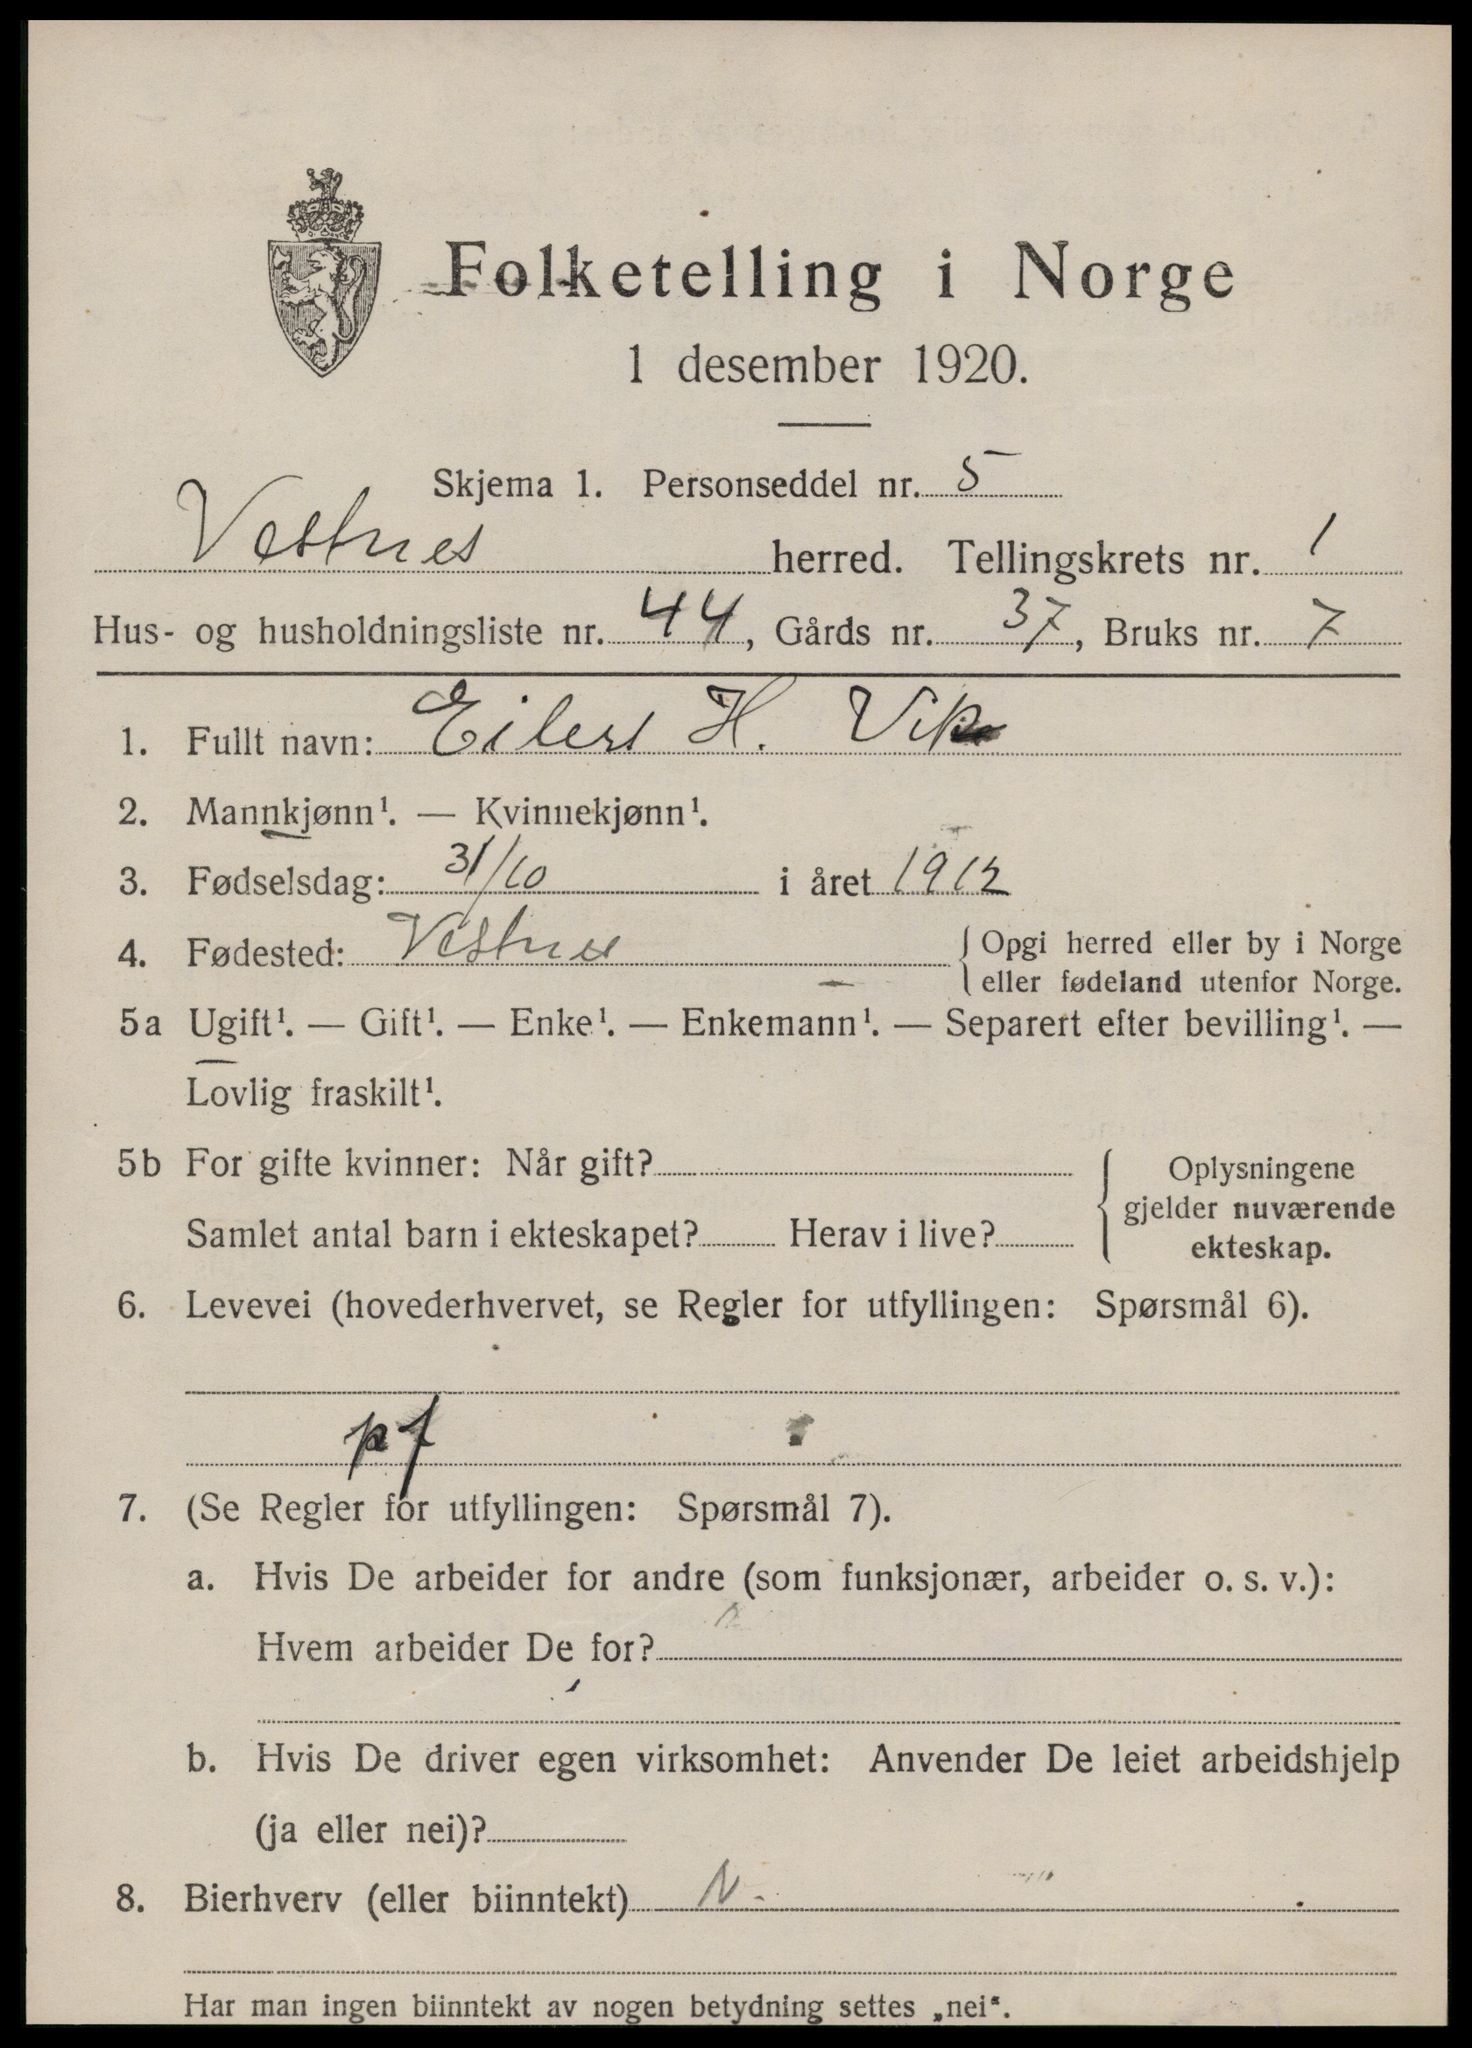 Folketelling i Norge
1 desember 1920.
Skjema 1. Personseddel nr. 5
Vestnes herred. Tellingskrets nr. 1
Hus- og husholdningsliste nr. 44, Gårds nr. 37, Bruks nr. 7
1. Fullt navn: Eilert H. Vik
2. Mannkjønn¹. — Kvinnekjønn¹.
3. Fødselsdag: 31/10 i året 1912
4. Fødested: Vestnes { Opgi herred eller by i Norge
eller fødeland utenfor Norge.
5a Ugift¹. — Gift¹. — Enke¹. — Enkemann¹. — Separert efter bevilling¹. —
Lovlig fraskilt¹.
5b For gifte kvinner: Når gift? { Oplysningene
gjelder nuværende
Samlet antal barn i ekteskapet? Herav i live?
ekteskap.
6. Levevei (hovederhvervet, se Regler for utfyllingen: Spørsmål 6).
pf
7. (Se Regler for utfyllingen: Spørsmål 7).
a. Hvis De arbeider for andre (som funksjonær, arbeider o. s. v.):
Hvem arbeider De for?
b. Hvis De driver egen virksomhet: Anvender De leiet arbeidshjelp
(ja eller nei)?
8. Bierhverv (eller biinntekt) N.
Har man ingen biinntekt av nogen betydning settes „nei".